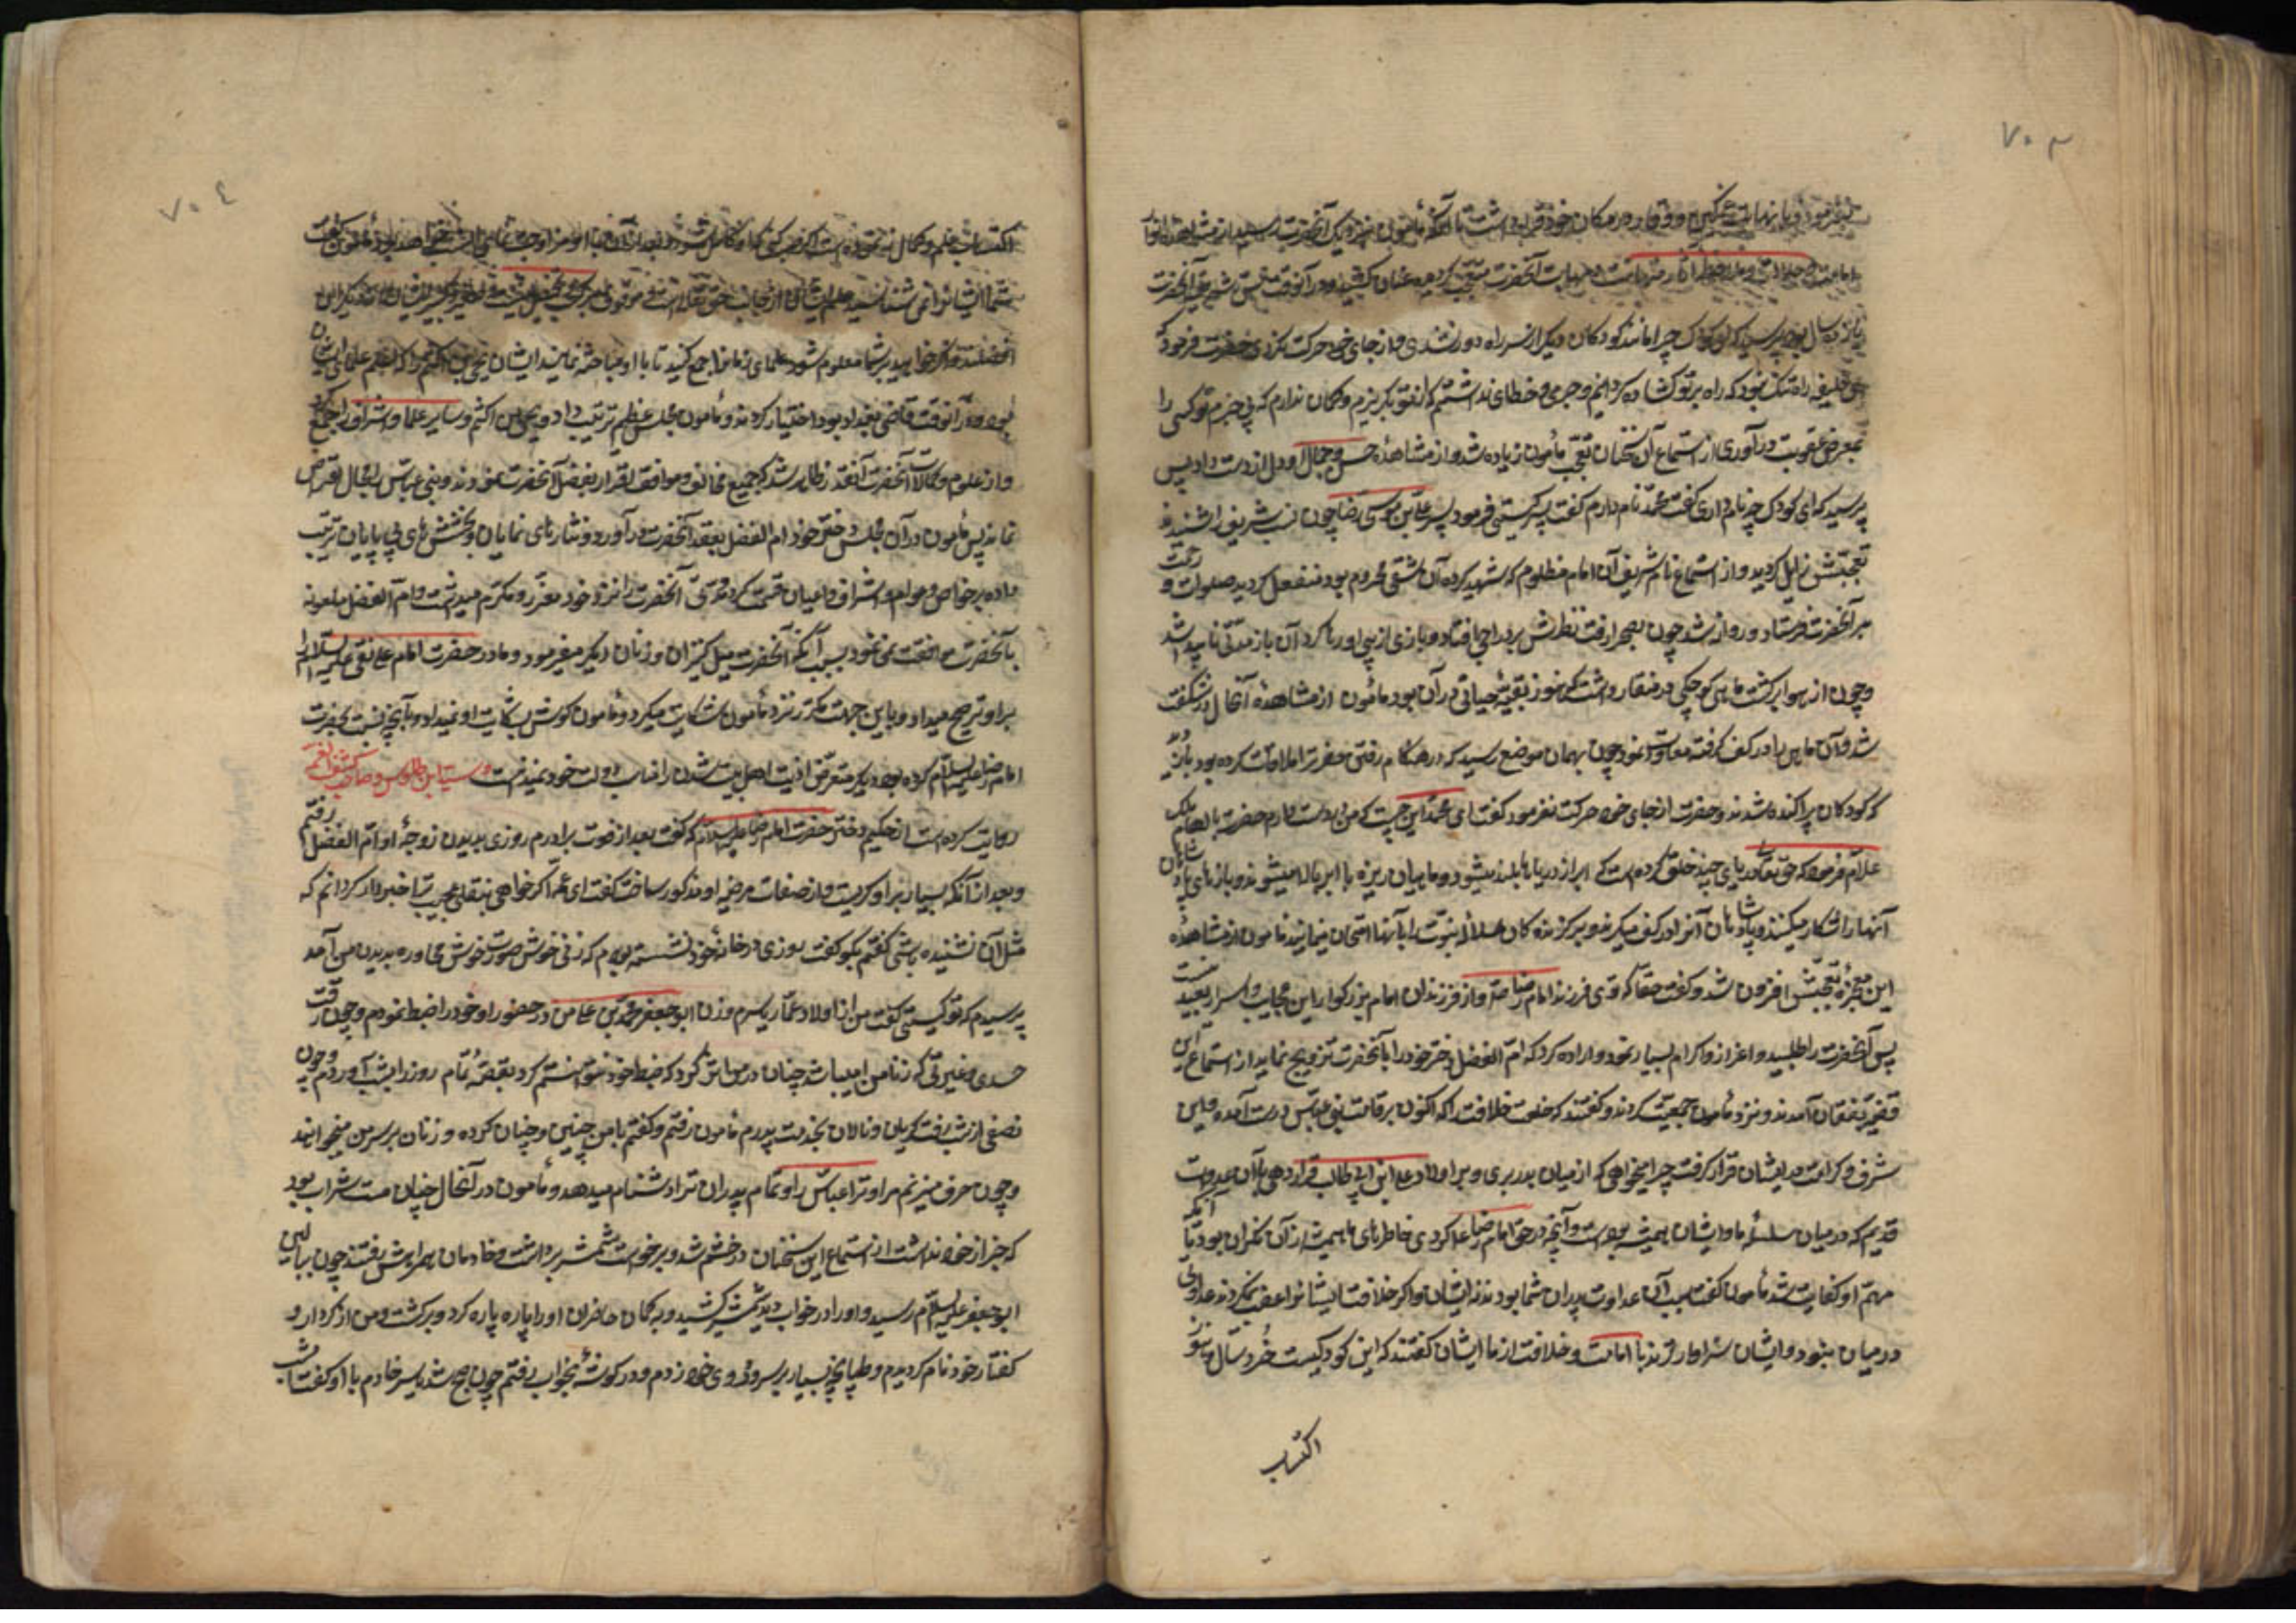 ٧٠٣
بفرمود و با نهایت تمکین و وقار در مکان خود قرار داشت تا آنکه مأمون بنزدیک آنحضرت رسید از مشاهده انوار
امامت و جلالت و ملاحظه آثار متانت و مهابت آنحضرت متعجب گردیده عنان کشید و در آنوقت سن شریف آنحضرت
یازده سال بود پرسید که ای کودک چرا مانند کودکان دیگر از سر راه دور نشدی و از جای خود حرکت نکردی حضرت فرمود که
ای خلیفه راه تنک نبود که راه بر تو کشاده کردانم و جرمی و خطای نداشتم که از تو بگریزم و گمان ندارم که بی جرم تو کسی را
بمعرض عقوبت در آوری از استماع آن سخنان تعجب مأمون زیاده شد و از مشاهدهٔ حسن و جمال او دل از دست داد پس
پرسید که ای کودک چه نام داری گفت محمد نام دارم گفت پسر کیستی فرمود پسر علی بن موسی رضا چون نسب شریفش را شنید
تعجبش زایل کردید و از استماع نام شریف آن امام مظلوم که شهید کرده آن شقی محروم بود منفعل کردید صلوات و رحمت
بر آنحضرت فرستاد و روانه شد چون بصحرا رفت نظرش بر دراجی افتاد و بازی از پی او رها کرد آن باز مدتی ناپیدا شد
و چون از هوا برگشت ماهی کوچکی در منقار داشت که هنوز بقیهٔ حیاتی در آن بود مأمون از مشاهدهٔ آنحال در شگفت
شد و آن ماهی را در کف گرفته معاودت نمود چون بهمان موضع رسید که در هنگام رفتن حضرت را ملاقات کرده بود باز دید
که کودکان پراکنده شدند و حضرت از جای خود حرکت نفرمود گفت ای محمد این چیست که من در دست دارم حضرت بالهام ملک
علام فرمود که حق تعالی دریای چند خلق کرده است که ابر از دریاها بلند میشود و ماهیان ریزه با ابر بالا میشوند و بازهای پادشاهان
آنها را شکار میکنند و پادشاهان آنرا در کف میگیرند و برگزیده کان سلالهٔ نبوت را بآنها امتحان مینمایند مأمون از مشاهدهٔ
این معجزه تعجبش افزون شد و گفت حقا که توی فرزند امام رضا و از فرزندان امام بزرکوار این عجایب و اسرار بعید نیست
پس آنحضرت را طلبید و اعزاز و اکرام بسیار نمود و اراده کرد که ام الفضل دختر خود را بآنحضرت تزویج نماید از استماع این
قضیه بفغان آمدند و نزد مأمون جمعیت کردند و گفتند که خلعت خلافت را که اکنون بر قامت بنی عباس درست آمده و این
شرف و کرامت در ایشان قرار گرفت چرا میخواهی که از میان بدر بری و بر اولاد علی ابن ابی طالب قرار دهی با آن عداوت
قدیم که در میان سلسلهٔ ما و ایشان همیشه بوده است و آنچه در حق امام رضا کردی خاطرهای ما همیشه از آن نگران بود تا آنکه
مهم او کفایت شد مأمون گفت سبب آن عداوت پدران شما بودند با ایشان و اگر خلافت ایشانرا غصب نمیکردند عداوتی
در میان نبود و ایشان سزاوارترند با امامت و خلافت از ما ایشان گفتند که این کودکیست خرد سال هنوز
اکتساب
٧٠٤
اکتساب علم و کمال ننموده است اگر صبر کنی که او کامل شود و بعد از آن با او مزاوجت نمای انسب خواهد بود مأمون گفت
شما ایشانرا نمی شناسید علم ایشان از جانب حق تعالی است و موقوف بر کسب و تحصیل نیست و صغیر و کبیر ایشان از دیگران
افضلند و اگر خواهید بر شما معلوم شود علمای زمانرا جمع کنید تا با او مباحثه نمایند ایشان یحیی بن اکثم را که اعلم علمای ایشان
بود و در آنوقت قاضی بغداد بود اختیار کردند و مأمون مجلس عظیم ترتیب داد و یحیی بن اکثم و سایر علما و اشراف را جمع کرد
و از علوم و کمالات آنحضرت آنقدر ظاهر شد که جمیع مخالف و موافق اقرار بفضل آنحضرت نمودند و بنی عباس را مجال اعتراض
نماند پس مأمون در آن مجلس دختر خود ام الفضل بعقد آنحضرت در آورد و نثارهای نمایان و بخشش های بی پایان ترتیب
داده بر خواص و عوام و اشراف و اعیان قسمت کرد و مدتی آنحضرت را نزد خود معزز و مکرم میداشت و ام الفضل ملعونه
بآنحضرت موافقت نمی نمود بسبب آنکه آنحضرت میل کنیزان و زنان دیگر میفرمود و مادر حضرت امام علی نقی علیه السلام را
بر او ترجیح میداد و باین جهت مکرر نزد مأمون شکایت میکرد و مأمون گوش بشکایت او نمیداد و بآنچه نسبت بحضرت
امام رضا علیه السلام کرده بود دیگر متعرض اذیت اهل بیت شدن را مناسب دولت خود نمیدانست و سید ابن طاوس و صاحب کشف الغمه
روایت کرده است از حکیمه دختر حضرت امام رضا علیه السلام که گفت بعد از فوت برادرم روزی بدیدن زوجهٔ او ام الفضل رفتم
و بعد از آنکه بسیار بر او گریست و از صفات مرضیه او مذکور ساخت گفت ای عمه اگر خواهی بنقلی عجیب ترا خبر دار گردانم که
مثل آن نشنیده باشی گفتم بگو گفت روزی در خانهٔ خود نشسته بودم که زنی خوش صورت خوش محاوره بدیدن من آمد
پرسیدم که تو کیستی گفت من از اولاد عمار یاسرم و زن ابو جعفر محمد بن علی من در حضور او خود را ضبط نمودم و چون رفت
حسدی و غیرتی که زنانرا میباشد چنان در من اثر کرد که ضبط خود نتوانستم کرد بغصهٔ تمام روز را بشب آوردم و چون
نصفی از شب رفت گریان و نالان بخدمت پدرم مأمون رفتم و گفتم با من چنین و چنان کرده و زنان بر سر من میخواهد
و چون حرف میزنم مرا و ترا و عباس را و تمام پدران ترا دشنام میدهد و مأمون در آنحال چنان مست شراب بود
که خبر از خود نداشت از استماع این سخنان در خشم شد و برخواست شمشیر برداشت و خادمان همراهش رفتند چون ببالین
ابو جعفر علیه السلام رسید و او را در خواب دید شمشیر کشید و بگمان حاضران او را پاره پاره کرد و برگشت و من از کردار و
گفتار خود نادم گردیدم و طپانچه بسیار بر سر و روی خود زدم و در گوشهٔ بخواب رفتم چون صبح شد یاسر خادم با او گفت